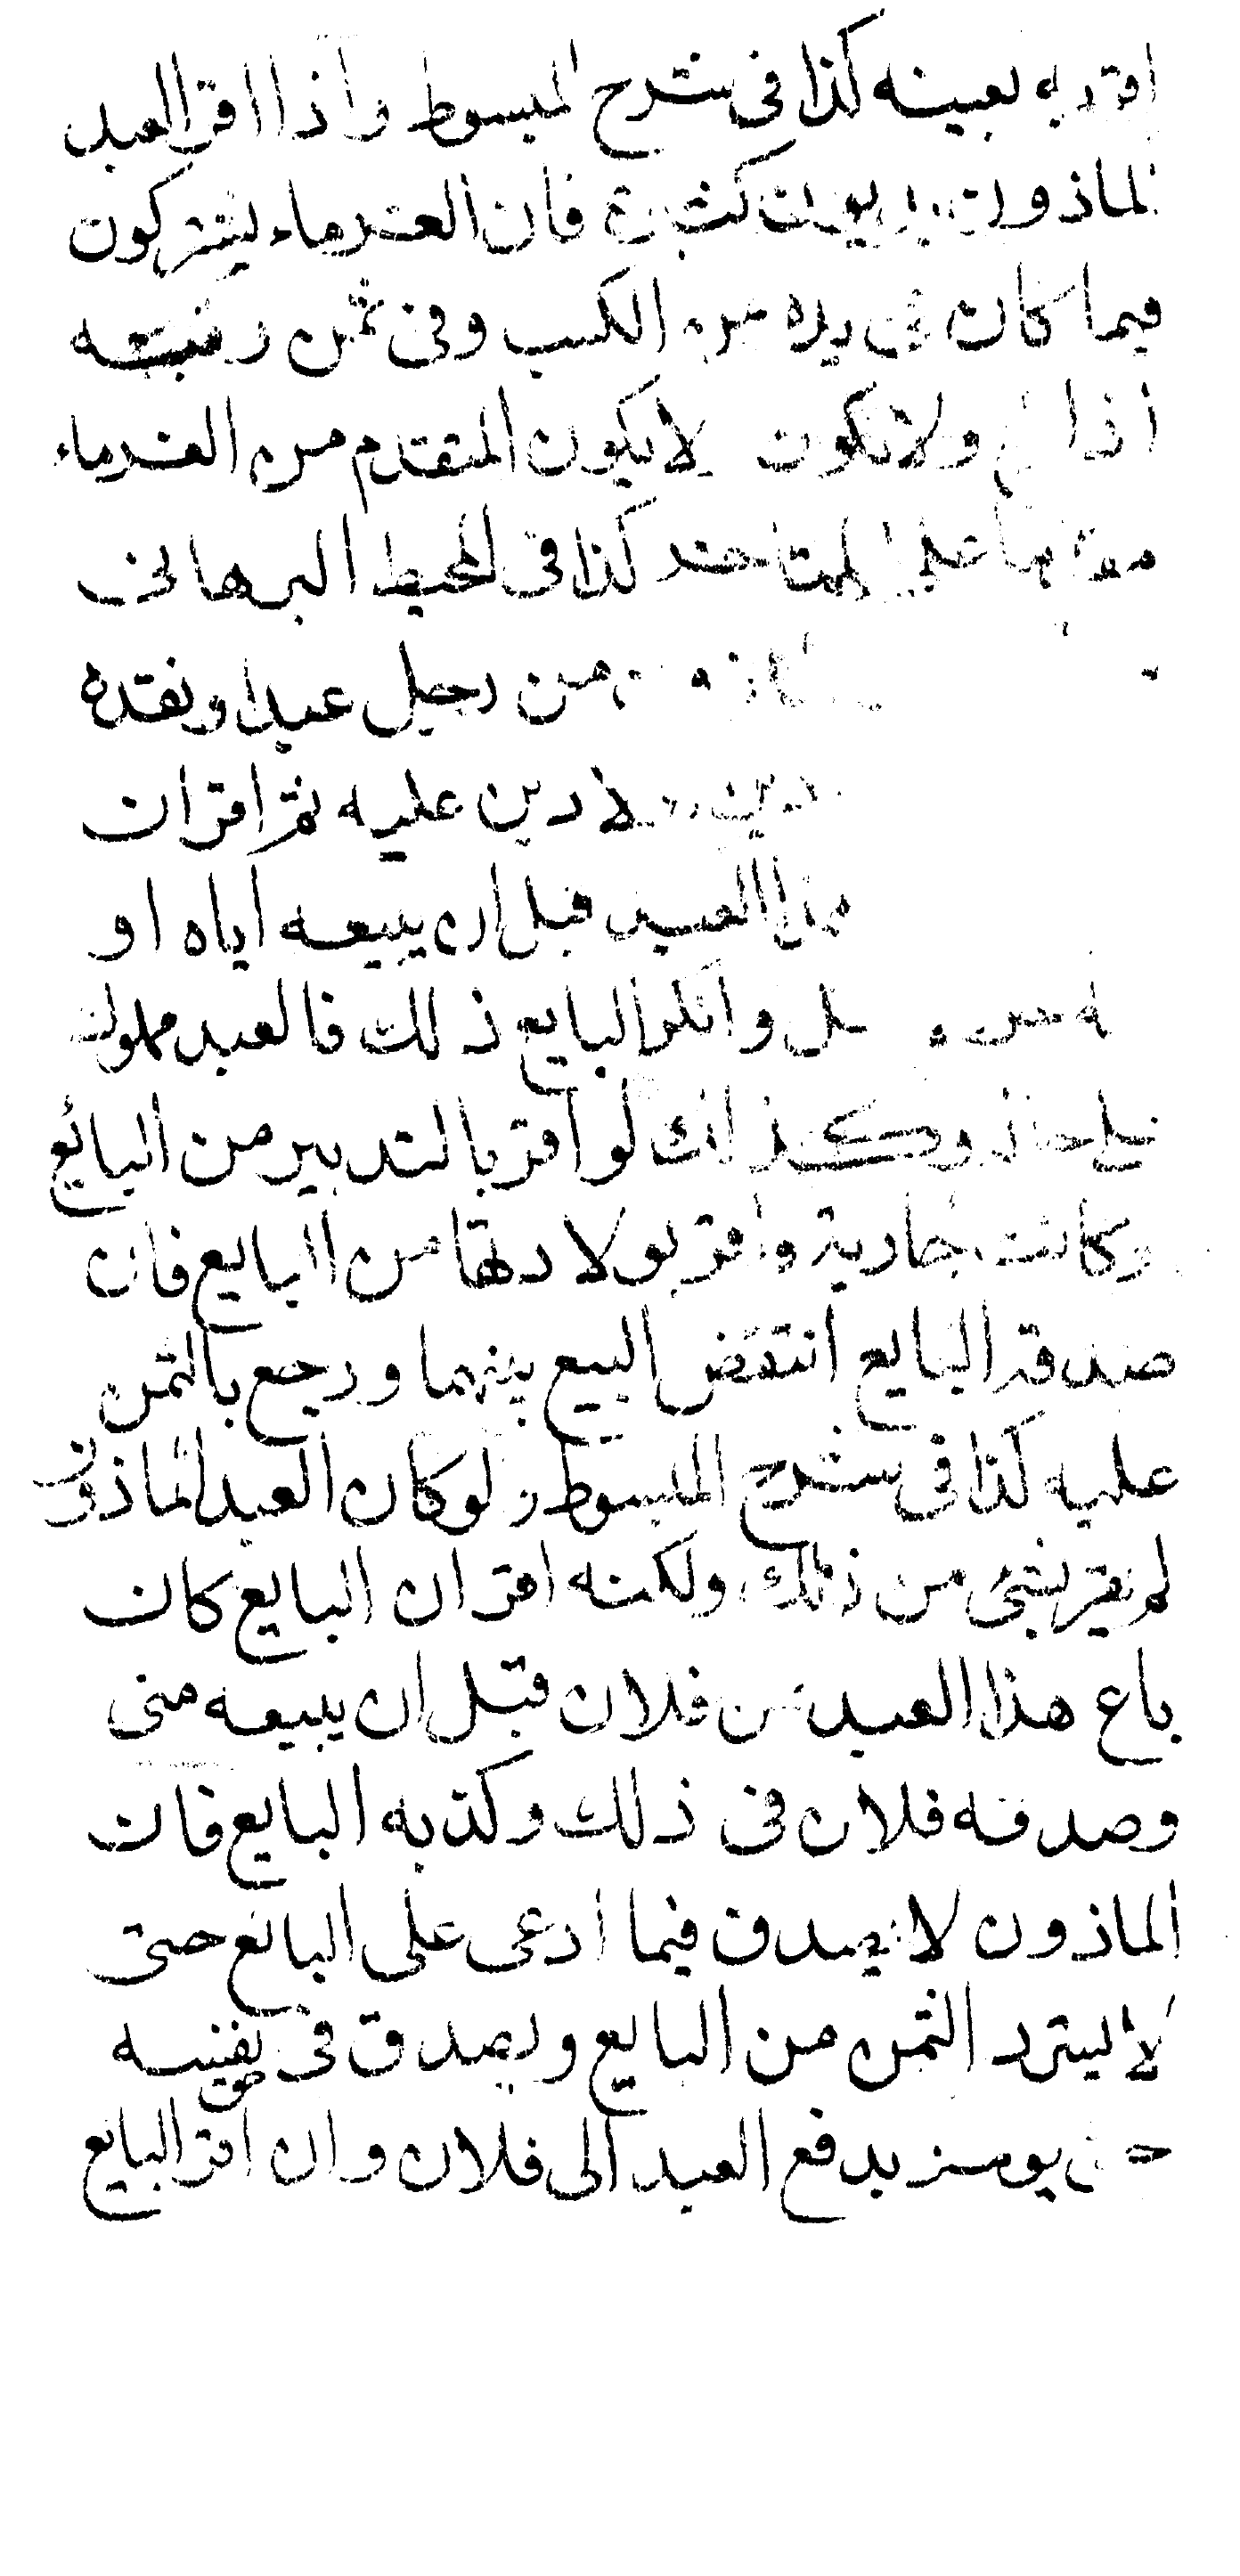 اقر به بعينه كذا فى شرح المبسوط واذا اقر العبد
الماذون بديون كثيرة فان الغرماء يشتركون
فيما كان فى يده من الكسب وفى ثمن رقبته
اذا ولا يكون لا يكون المتقدم من الغرماء
على المتاخر كذا فى المحيط البرهانى
من رجل عبدا ونقده
دين لا دين عليه ثم اقر ان
هذا العبد قبل ان يبيعه اياه او
وانكر البايع ذلك فالعبد مملوك
وكذلك لو اقر بالتدبير من البائع
وكانت جارية واقر بولادتها من البايع فان
صدقه البايع انتقض البيع بينهما ورجع بالثمن
عليه كذا فى شرح المبسوط ولو كان العبد الماذون
لم يقر بشئ من ذلك ولكنه اقر ان البايع كان
باع هذا العبد من فلان قبل ان يبيعه منى
وصدقه فلان فى ذلك وكذبه البايع فان
الماذون لا يصدق فيما ادعى على البائع حتى
لا يسترد الثمن من البايع ويصدق فى حق نفسه
يومر بدفع العبد الى فلان وان اقر البايع